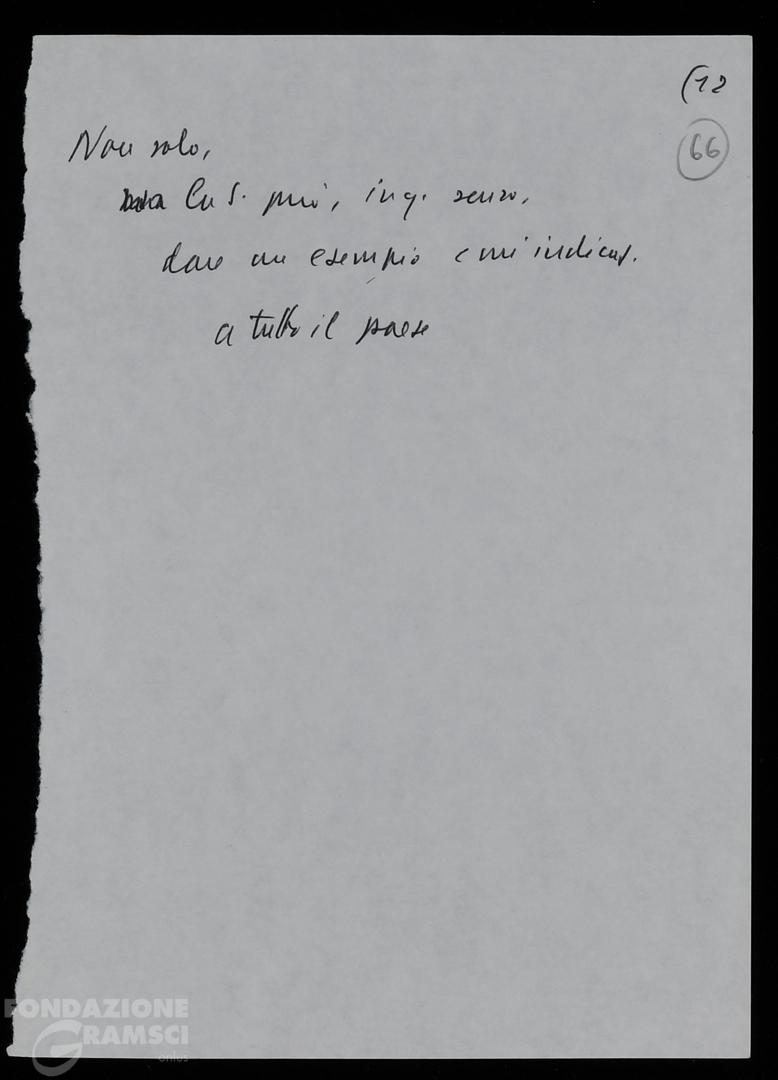 (12
66
Non solo,
ma la S. può, in q. senso,
dare un esempio e un'indicaz.
a tutto il paese
FONDAZIONE
GRAMSCI
onlus